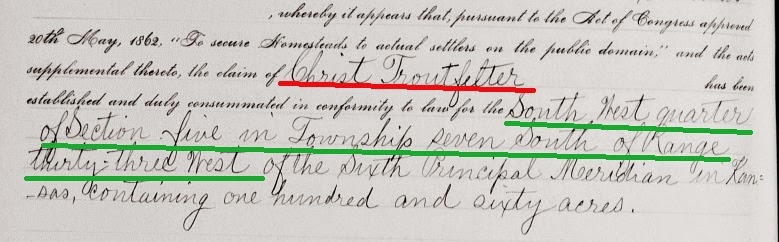 , whereby it appears that, pursuant to the Act of Congress approved
20th May, 1862, "To secure Homesteads to actual settlers on the public domain," and the acts
supplemental thereto, the claim of Christ Troutfelter has been
established and duly consummated in conformity to law for the South West quarter
of Section five in Township seven South of Range
thirty-three West of the Sixth Principal Meridian in Kan=
-sas, containing one hundred and sixty acres.